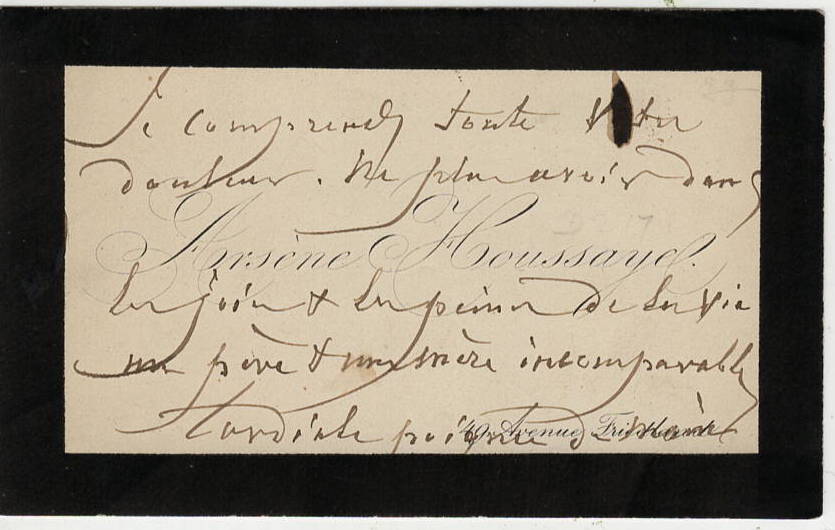 Je comprends toute votre
douleur. Ne plus avoir dans
Arsène Houssaye.
les joies & les peines de la vie
un père & une mère incomparables
Cordiale poignée de main
49, Avenue Friedland